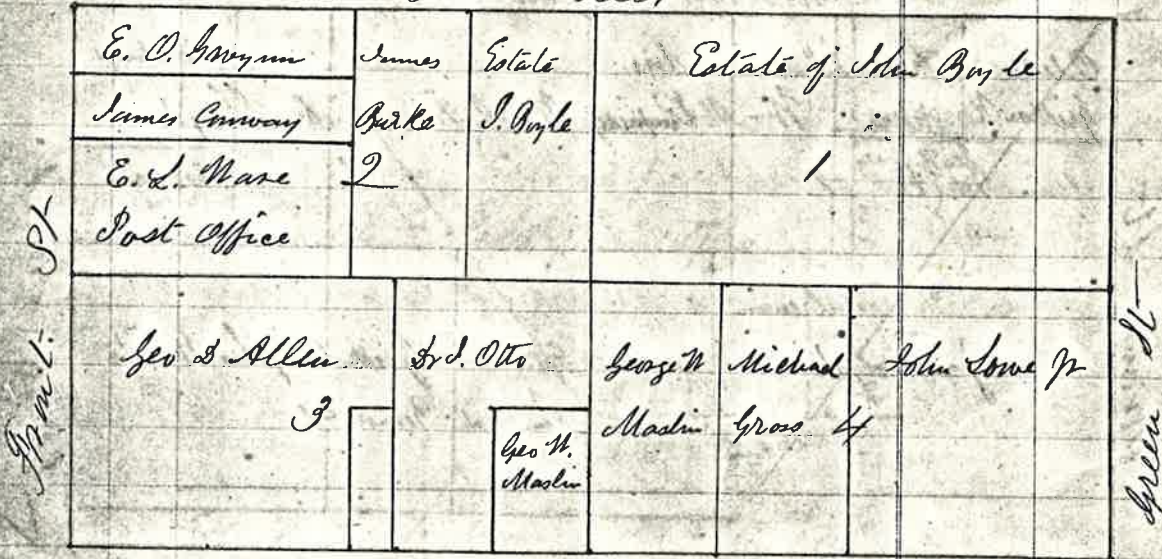 E. O. Gwynn
James Conway
E. L. Ware
Post Office
James
Burke
2
Estate
J. Boyle
Estate of John Boyle
1
St
Geo D Allen
3
Dr J. Otto
Geo W.
Maslin
George W
Maslin
Michael
Gross 4
John Lowe Jr
Green St